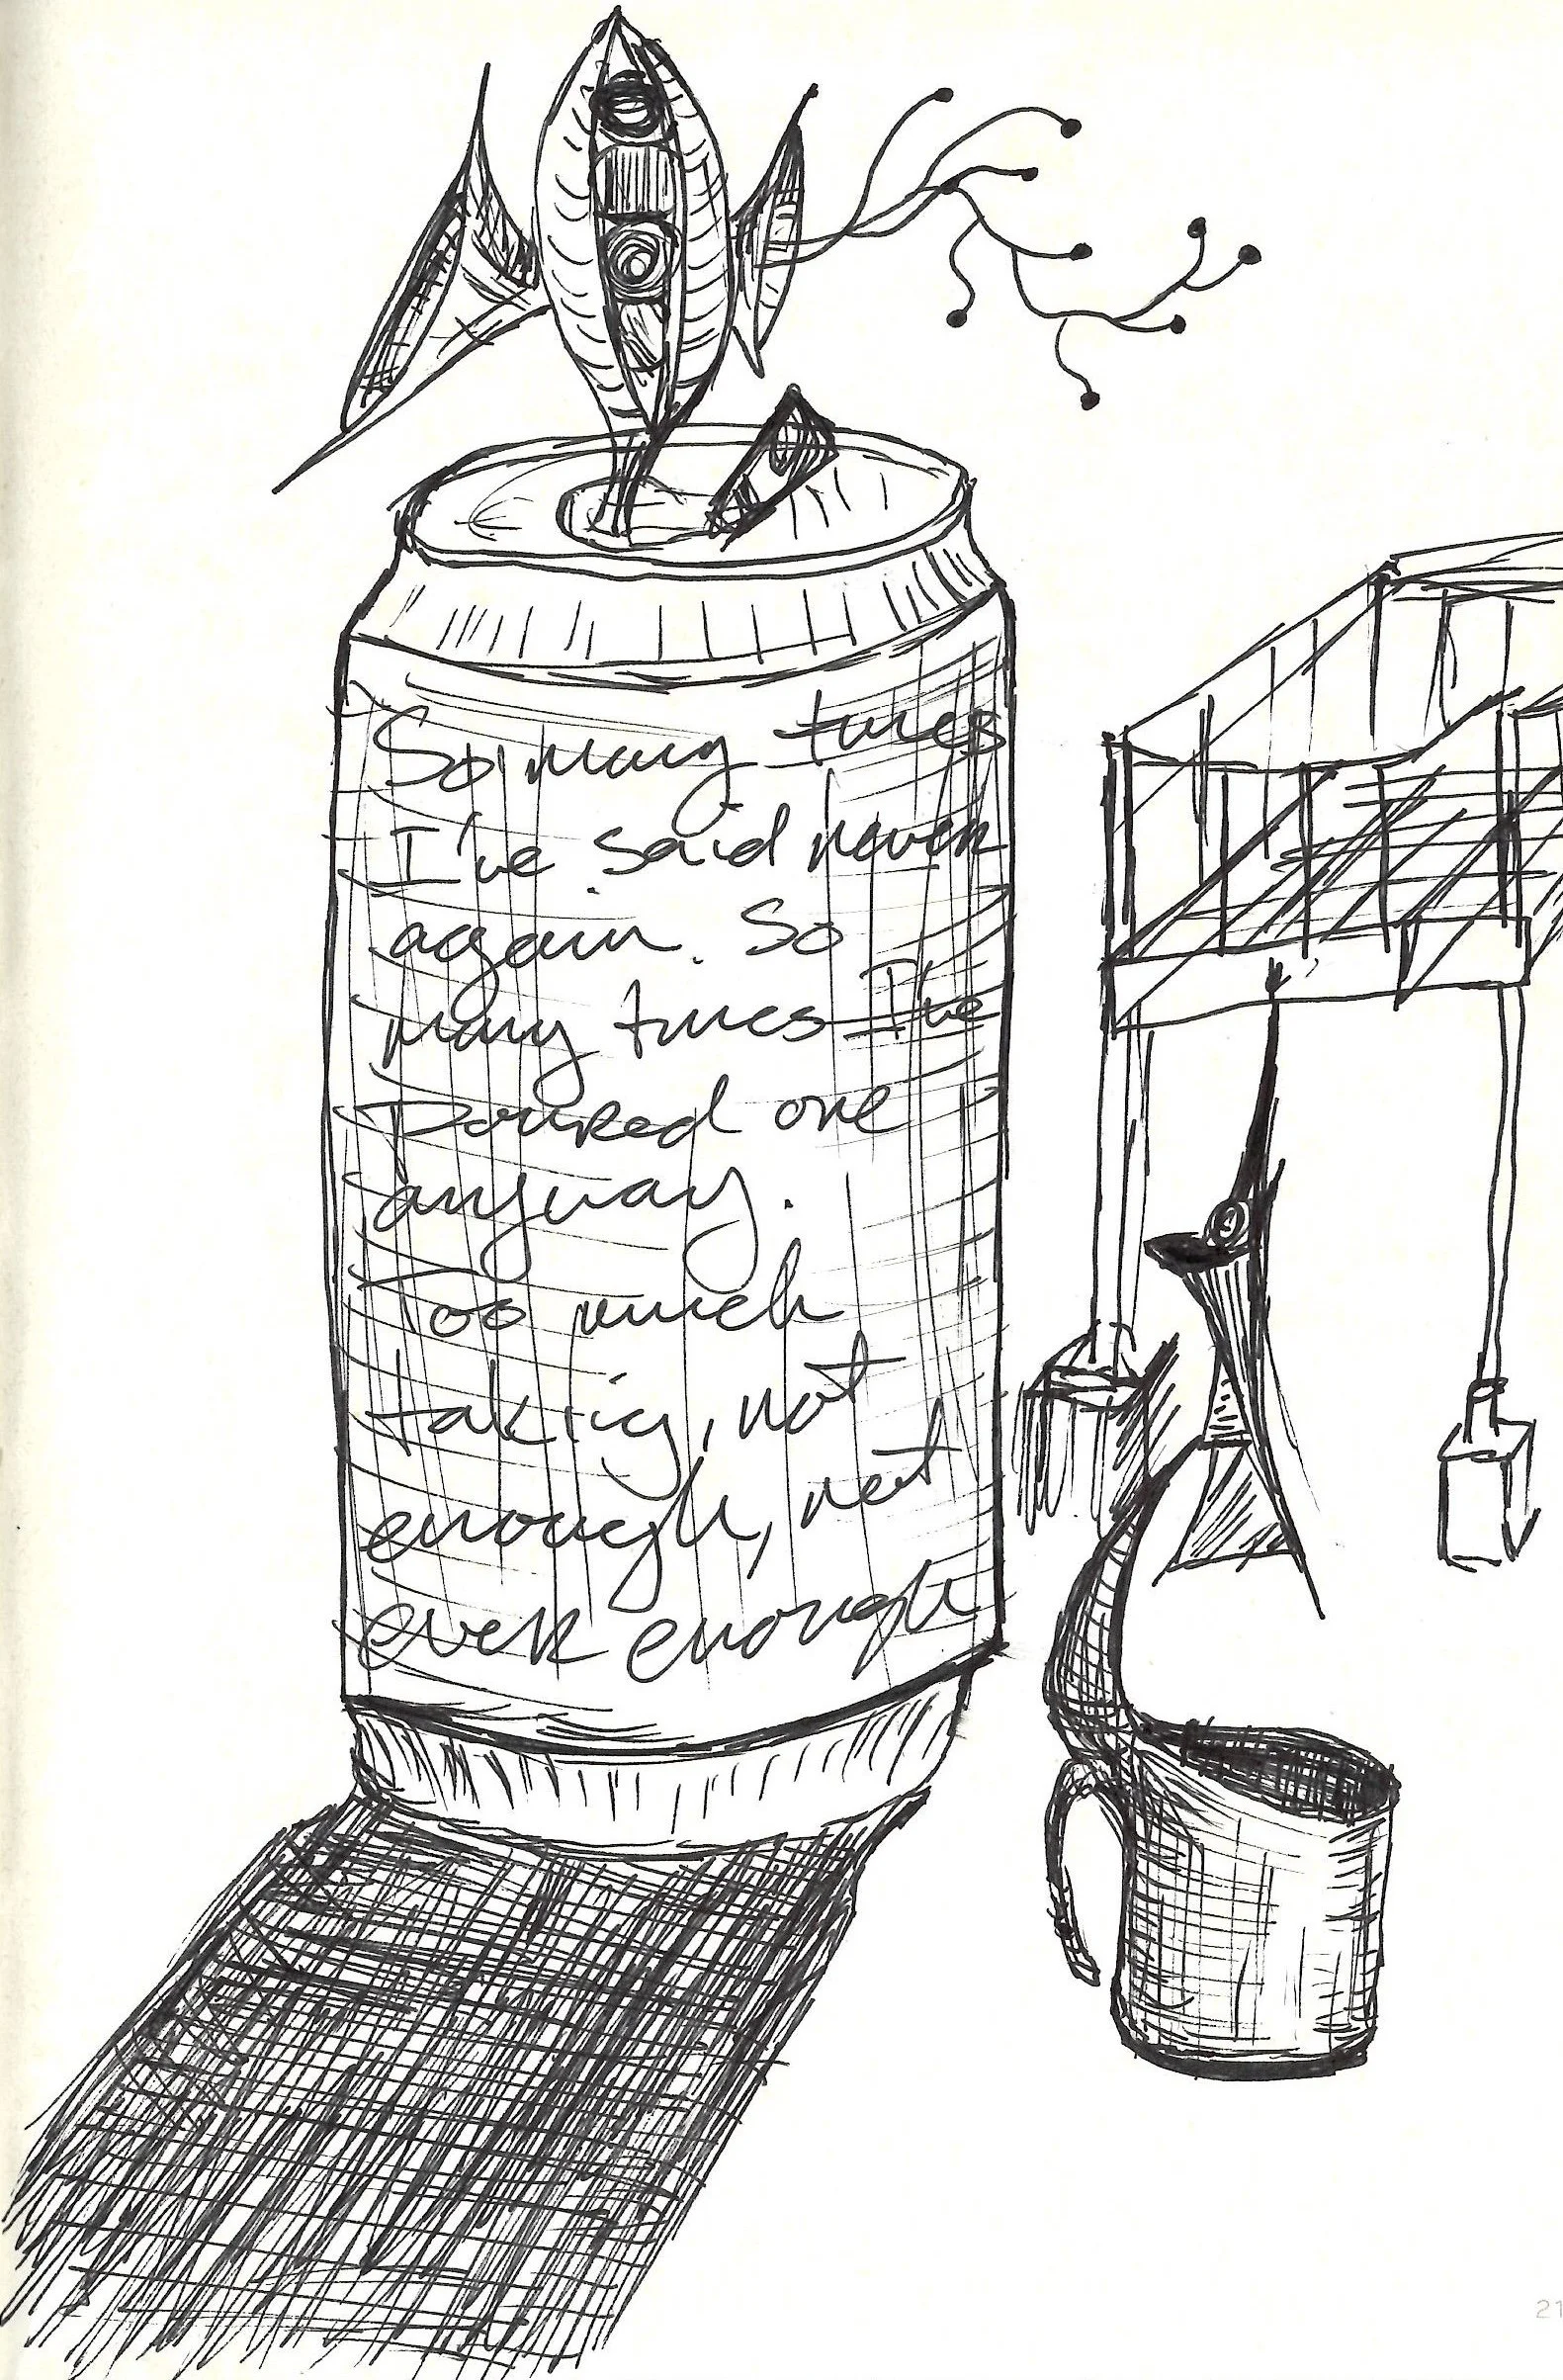 So many times
I've said never
again. So
many times I've
Poured one
anyway.
Too much
taking, not
enough, not
even enough
21